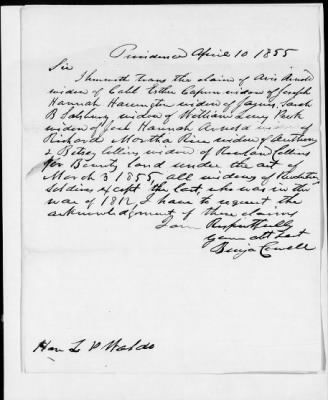 Providence April 10 1855
Sir
I herewith trans the claim of Avis Arnold
widow of Caleb Esther Capron widow of Joseph
Hannah Harrington widow of James, Sarah
B Salsbury, widow of William Lucy Peck
widow of Joel Hannah Arnold widow of
Richard Martha Rice widow of Anthony
& Betsey Collins widow of Rowland Collins
for Bounty land under the act of
March 3 1855, all widows of Revolution
soldiers except the last, who was in the
war of 1812, I have to request the
acknowledgment of these claims
I am Respectfully
Your obt Sert
Benja Cowell
Hon L P Waldo